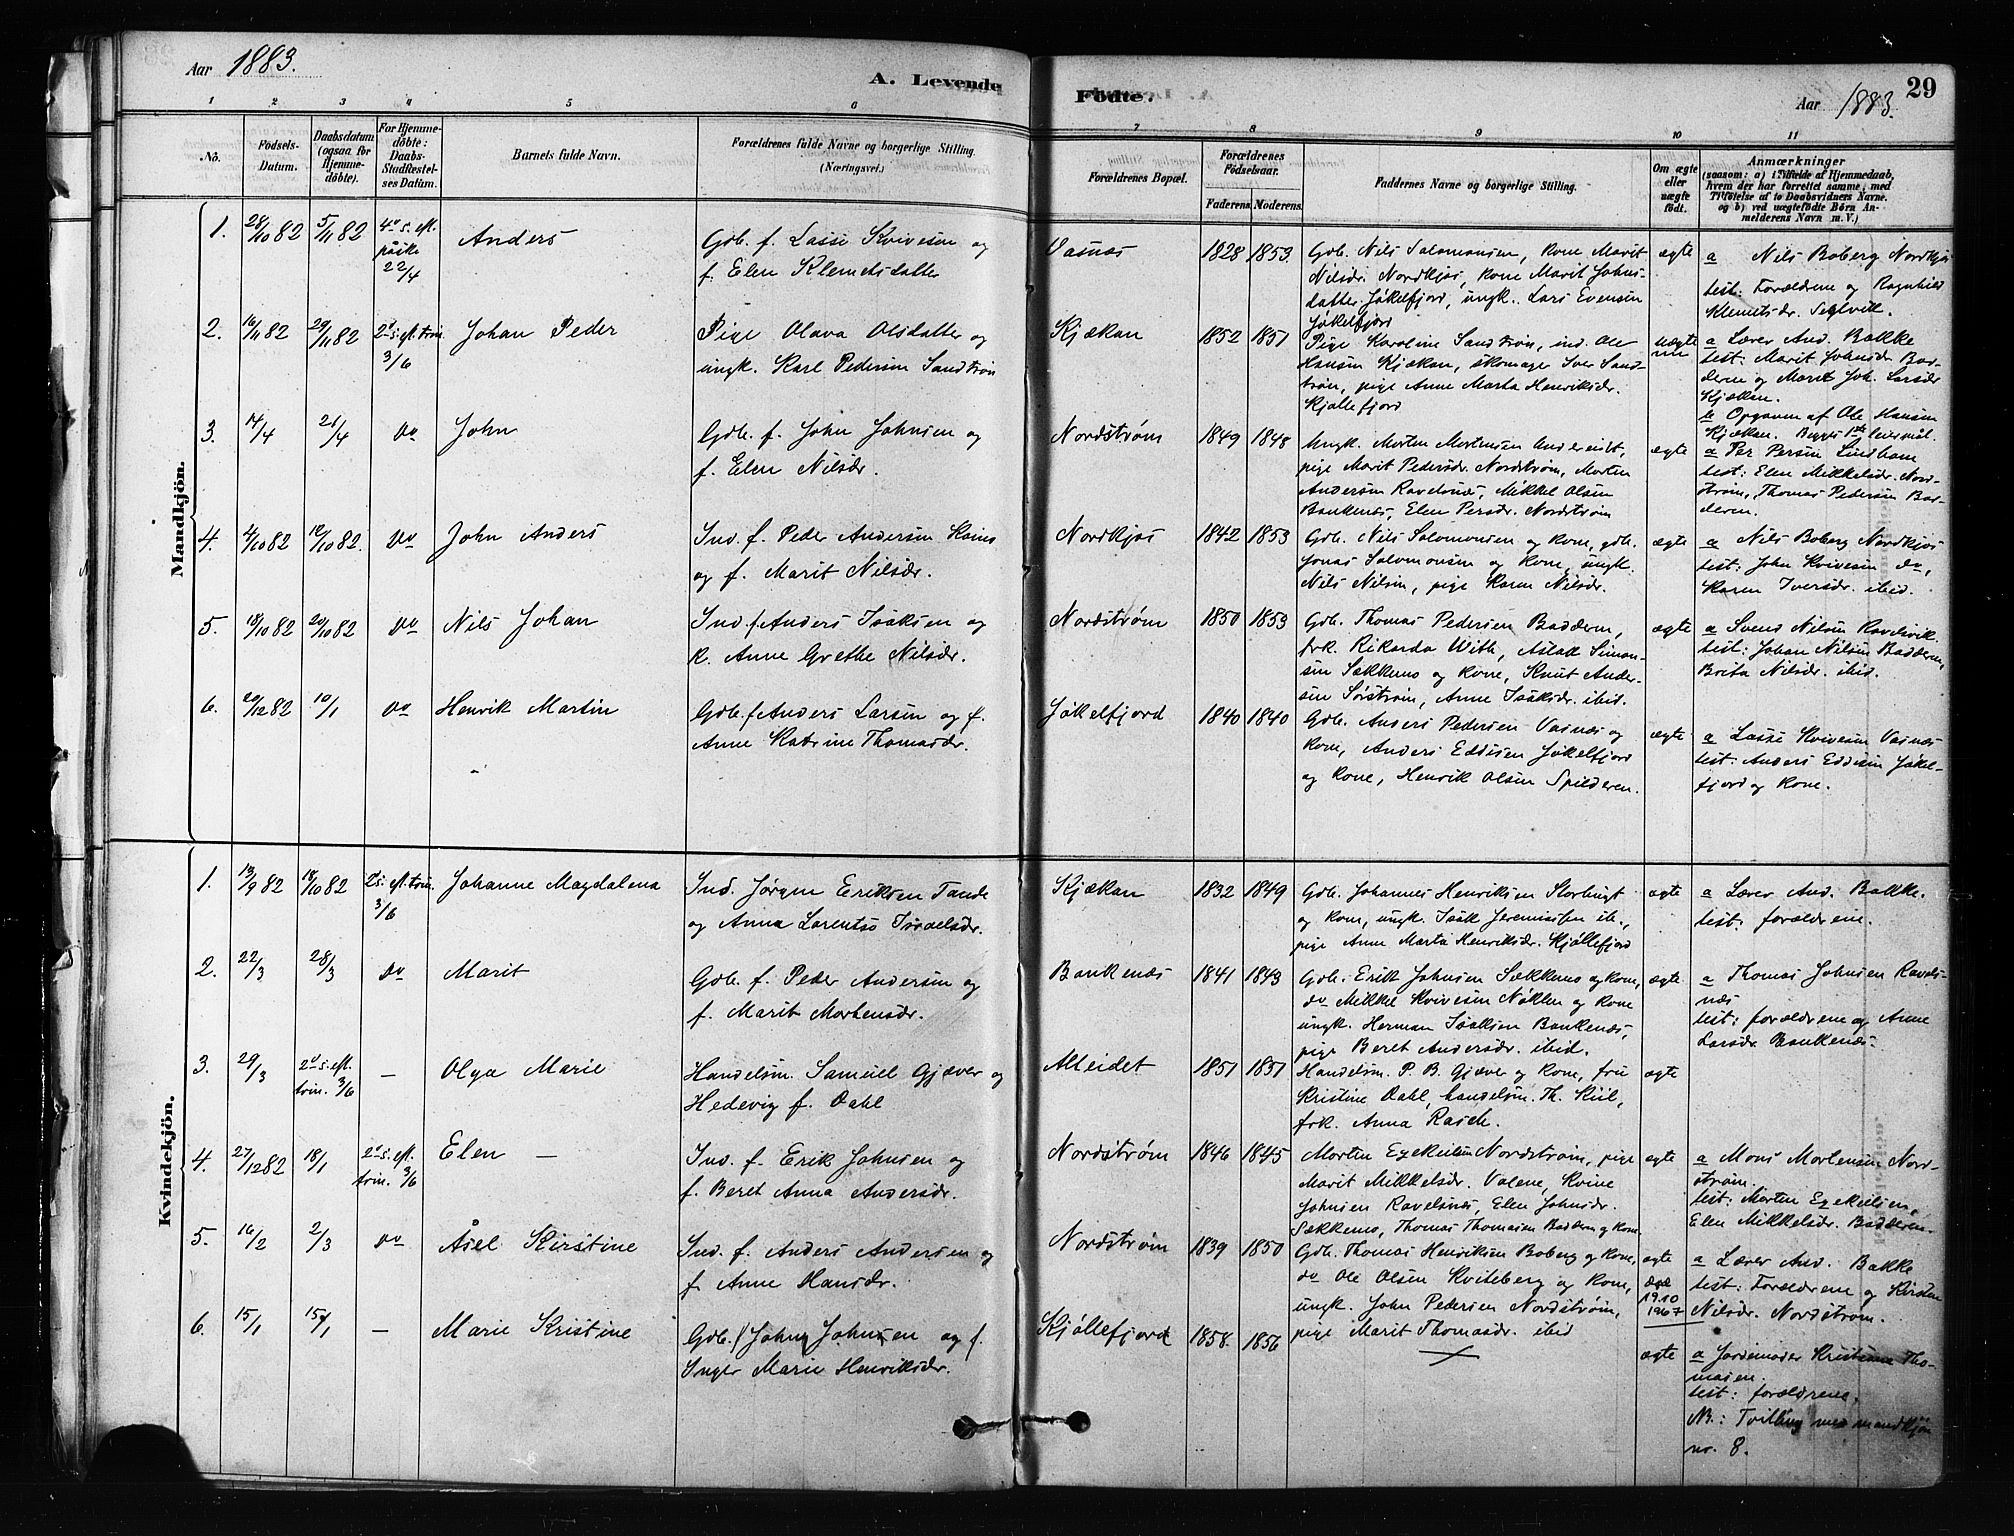 Aar 1883.
A. Levende
Födte.
Aar 1883.
29
1 2 3 4 5 6 7 8 9 10 11
No.
Födsels-
Datum.
Daabsdatum
(ogsaa for
Hjemme-
döbte).
For Hjemme-
döbte:
Daabs-
Stadfæstel-
ses Datum.
Barnets fulde Navn.
Forældrenes fulde Navne og borgerlige Stilling.
(Næringsvei.)
Forældrenes Bopæl.
Forældrenes
Födselsaar.
Faderens. Moderens.
Faddernes Navne og borgerlige Stilling.
Om ægte
eller
uægte
födt.
Anmærkninger
(saasom: a) i Tilfælde af Hjemmedaab,
hvem der har forrettet samme, med
Tilföielse af to Daabsvidners Navne.
og b) ved uægtefödte Börn An-
melderens Navn m. V.)
Mandkjön.
1. 28/10 82 5/11 82 4de s. eft.
påske
22/4
Anders
Gdb. f. Lasse Kvivesen og
f. Elen Klemetsdatter
Vasnæs
1828 1853
Gdb. Nils Salomonsen, kone Marit
Nilsdr. Nordkjos, kone Marit Johns-
datter Jökelfjord, ungk. Lars Evensen
Jökelfjord
ægte
a Nils Boberg Nordkjos
test: Forældrene og Ragnhild
Klemetsdr. Seglvik.
2. 16/11 82 29/11 82 2d s. eft. trin.
3/6
Johan Peder
Pige Olava Olsdatter og
ungk. Karl Pedersen Sandström
Kjækan
1852 1851
Pige Karoline Sandström, ind. Ole
Hansen Kjækan, skomager Iver Sand-
ström, pige Anne Marta Henriksdr.
Kjöllefjord
uægte
a Lærer And. Bakke
test: Marit Johnsdr. Bad-
deren og Marit Joh. Larsdr
Kjækan.
b Opgaven af Ole Hansen
Kjækan. Begges 1ste leiermål.
3. 14/4 21/4 do
John
Gdb. f. John Johnsen og
f. Elen Nilsdr.
Nordström
1849 1848
Ungk. Morten Mortensen
pige Marit Pedersdr. Nordström, Morten
Andersen Ravelsnæs, Mikkel Olsen
Bankenæs, Elen Persdr. Nordström
ægte
a Per Persen Lindbom
test: Elen Mikkelsdr. Nord-
ström, Thomas Pedersen Bad-
deren.
4. 4/10 82 12/10 82. do
John Anders
Ind. f. Peder Andersen
og f. Marit Nilsdr.
Nordkjos
1842 1853
Gdb. Nils Salomonsen og kone, gdb.
Jonas Salomonsen og kone, ungk.
Nils Nilsen, pige Karen Nilsdr.
ægte
a Nils Boberg Nordkjos
test: John Kvivesen do,
Karen Iversdr. ibid.
5. 18/10 82 20/10 82 do
Nils Johan
Ind. f. Anders Isaksen og
k. Anne Grethe Nilsdr.
Nordström
1850 1853
Gdb. Thomas Pedersen Badderen,
frk. Rikarda With, Aslak Simon-
sen Sækkemo og kone, Knut Ander-
sen Sörström, Anne Isaksdr. ibid.
ægte
a Svend Nilsen Ravelsvik
test: Johan Nilsen Badderen,
Brita Nilsdr. ibid.
6. 20/12 82 10/1 do
Henrik Martin
Gdb. f. Anders Larsen og f.
Anne Katrine Thomasdr.
Jökelfjord
1840 1840
Gdb. Anders Pedersen Vasnæs og
kone, Anders Eddisen Jökelfjord
og kone, Henrik Olsen Spilderen.
ægte
a Lasse Kvivesen Vasnæs
test: Anders Eddisen Jökel-
fjord og kone.
Kvindekjön.
1. 13/9 82 18/10 82 2d s. eft. trin.
3/6
Johanne Magdalena
Ind. Jörgen Eriksen Tande
og Anna Lorentse Israelsdr.
Kjækan
1832 1849
Gdb. Johannes Henriksen Storbugt
og kone, ungk. Isak Jeremiassen ib.,
pige Anne Marta Henriksdr. Kjöllefjord
ægte
a Lærer And. Bakke.
test: forældrene.
2. 22/3 28/3 do
Marit
Gdb. f. Peder Andersen og
f. Marit Mortensdr.
Bankenæs
1841 1843
Gdb. Erik Johnsen Sækkemo og kone,
do Mikkel Kvivesen Nöklen og kone
ungk. Herman Isaksen Bankenæs,
pige Beret Andersdr. ibid.
ægte
a Thomas Johnsen Ravels-
næs
test: forældrene og Anne
Larsdr. Bankenæs.
3. 29/3 2d s. eft.
trin. 3/6 —
Olga Marie
Handelsm. Samuel Gjæver og
Hedevig f. Dahl
Alteidet
1851 1851
Handelsm. P. B. Gjæver og kone, fru
Kristine Dahl, handelsm. Th. Kiil,
frk. Anna Rasch.
ægte
4. 27/12 82 18/1 2d s. eft.
trin. 3/6
Elen —
Ind. f. Erik Johnsen og
f. Beret Anna Andersdr.
Nordström
1846 1845
Morten Ezekielsen Nordström, pige
Marit Mikkelsdr. Valene, Kvine
Johnsen Ravelsnæs, Elen Johnsdr.
Sækkemo, Thomas Thomasen Baddern og kone
ægte
a Mons Mortensen Nord-
ström.
test: Morten Ezekielsen,
Elen Mikkelsdr. Badderen.
5. 16/2 2/3 do
Åsel Kirstine
Ind. f. Anders Andersen og
f. Anne Hansdr.
Nordström
1839 1850
Gdb. Thomas Henriksen Boberg og kone,
do Ole Olsen Kviteberg og kone,
ungk. John Pedersen Nordström,
pige Marit Thomasdr. ibid
ægte
19.10
1967
a Lærer And. Bakke
test: Forældrene og Kirsten
Nilsdr. Nordström.
6. 15/1 15/1 —
Marie Kristine
Gdb. f. John Johnsen og f.
Inger Marie Henriksdr.
Kjöllefjord
1858. 1856
ægte
a Jordemoder Kristianne Tho-
masen.
test: forældrene.
NB.: Tvilling med mandkjön
nr. 8.